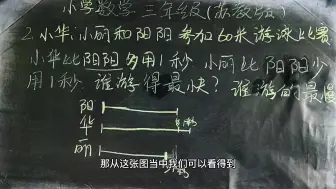 小学数学 三年级(苏教版)
2.小华、小丽和阳阳参加60米游泳比赛
小华比阳阳多用1秒 小丽比阳阳少
用1秒 谁游得最快?谁游的最慢
阳
华
1秒
丽
1秒
那从这张图当中我们可以看得到